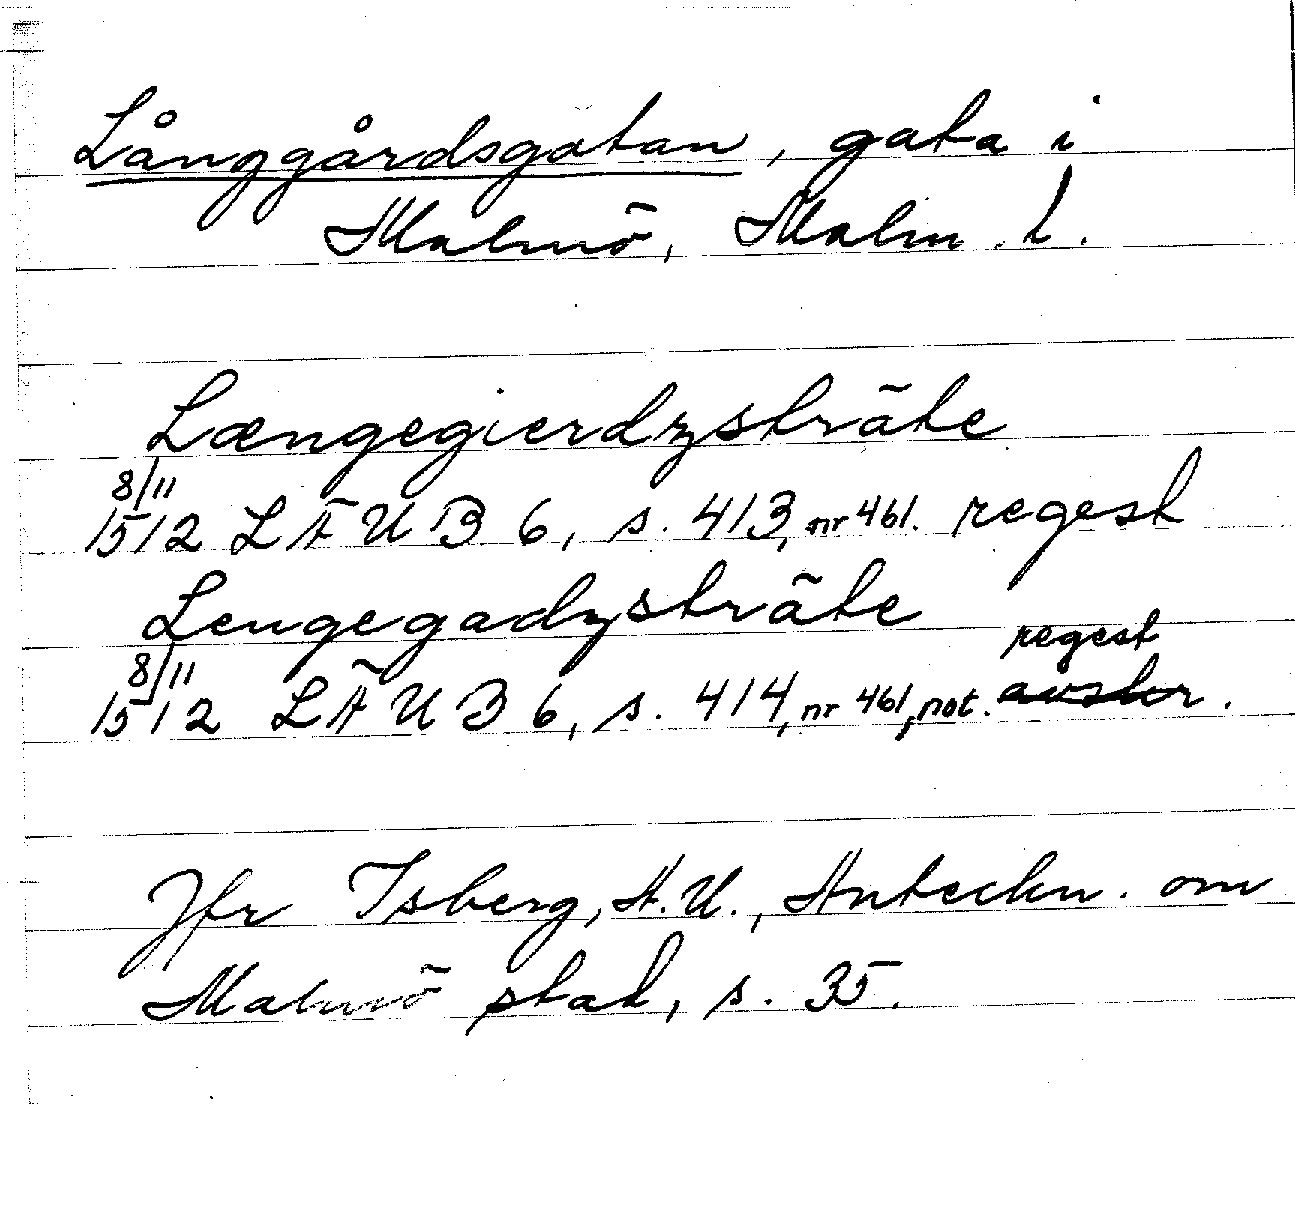 Långgårdsgatan, gata i
Malmö, Malm. l.
Længegierdzsträte
8/11
1512 LÄUB 6, s. 413, nr 461. regest
Lengegadzsträte
8/11 regest
1512 LÄUB 6, s. 414, nr 461, not. avskr.
Jfr Isberg, A.U., Anteckn. om
Malmö stad, s. 35.